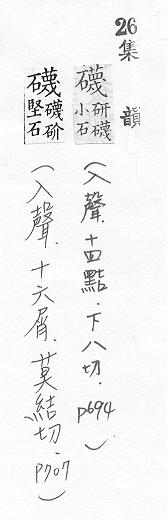 26
集韻
礣 研礣小石
(入聲.十四黠.下八切.p694)
礣 礣砎堅石
(入聲.十六屑.莫結切.p707)